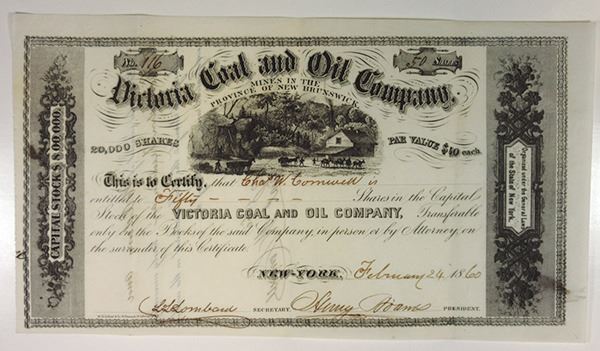 No. 116
50 Shares
Victoria Coal and Oil Company.
MINES IN THE
PROVINCE OF NEW BRUNSWICK.
20,000 SHARES
PAR VALUE $40 each.
This is to Certify, that Chas W. Cornwell is
entitled to Fifty - - - - Shares in the Capital
Stock of the VICTORIA COAL AND OIL COMPANY, Transferable
only on the Books of the said Company, in person or by Attorney, on
the surrender of this Certificate.
NEW-YORK, February 24 1860
Lombard SECRETARY. Henry PRESIDENT.
CAPITAL STOCK $800,000.
Organized under the General Laws
of the State of New York.